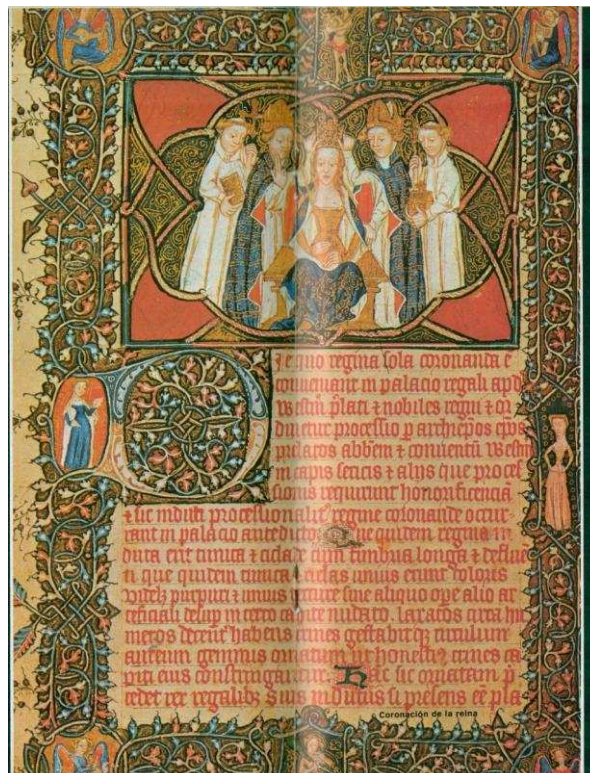 ie quo regina sola coronanda e
conueniant in palacio regali apd
westm plati ⁊ nobiles regni ⁊ or
dinetur processio p archiepos epos
prelatos abbem ⁊ conuentu westm
in capis sericis ⁊ alijs que proces
sionis requirunt honorificencia
⁊ sic induti processionalit regine coronande occur
rant in palacio antedicto Que quidem regina in
duta erit tunica ⁊ cum fimbria longa ⁊ deflue
n que quidem tunica unius erunt coloris
videlz purpurei ⁊ unius sine aliquo ope alio ar
teficiali desup in capite nudato. laxatos circa hu
meros decent' habens crines gestabitqz circulum
aureum gemmis ornatum ut honestiꝰ crines ca
piti eius constringat Hec sic ornatam p
cedet rex regalibz suis indutus si presens ee pla
Coronación de la reina